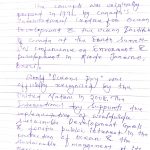 The concept was originally
proposed in 1992 by Canada's
International Centre for Ocean
Development & the Ocean Institute
of Canada at the Earth Summit
UN Conference on Environment &
Development in Rio de Janeiro,
Brazil.
"World Oceans Day" was
officially recognized by the
United Nations in 2008. The
International day supports the
implementation of worldwide
Sustainable Development Goals
& fosters public interest in the
protection of ocean & the
sustainable management of its